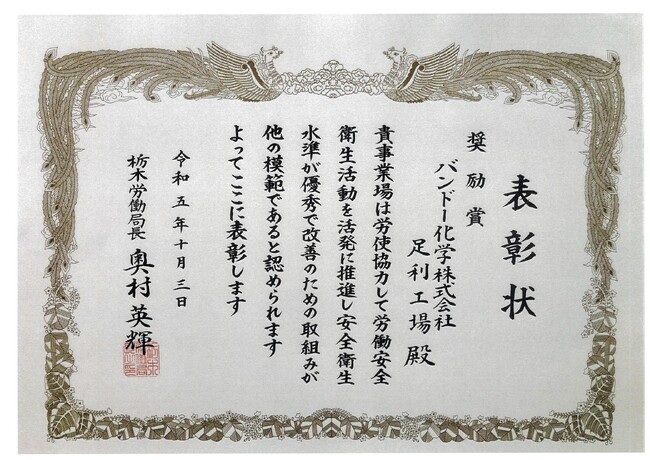 表彰状
奨励賞
バンドー化学株式会社
足利工場殿
貴事業場は労使協力して労働安全
衛生活動を活発に推進し安全衛生
水準が優秀で改善のための取組みが
他の模範であると認められます
よってここに表彰します
令和五年十月三日
栃木労働局長 奥村英輝